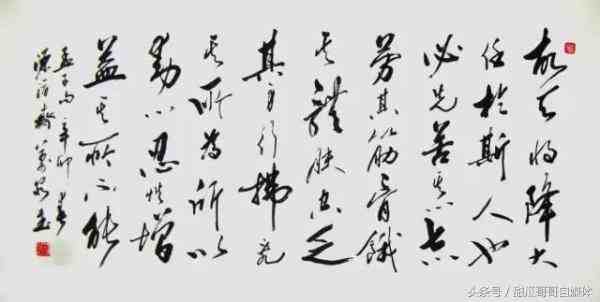 故天将降大
任於斯人也
必先苦其心志
劳其筋骨餓
其體膚空乏
其身行拂乱
其所为所以
動心忍性增
益其所不能
孟子句辛卯春
头条号 / 哥哥自媒体